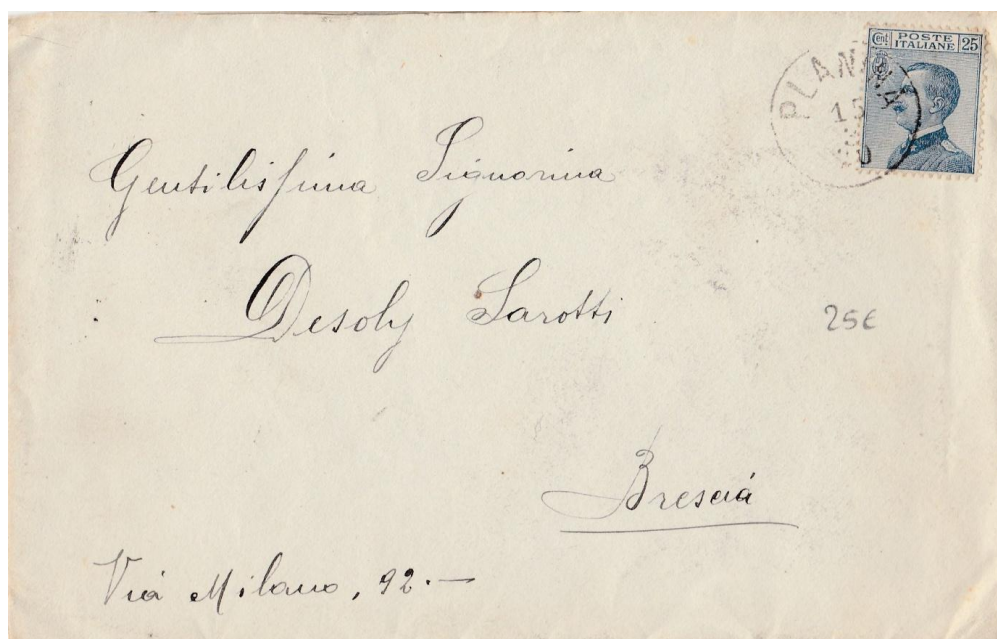 Cent POSTE ITALIANE 25
PLANINA
15
Gentilissima Signorina
Desoly Sarotti
25€
Brescia
Via Milano, 92.—